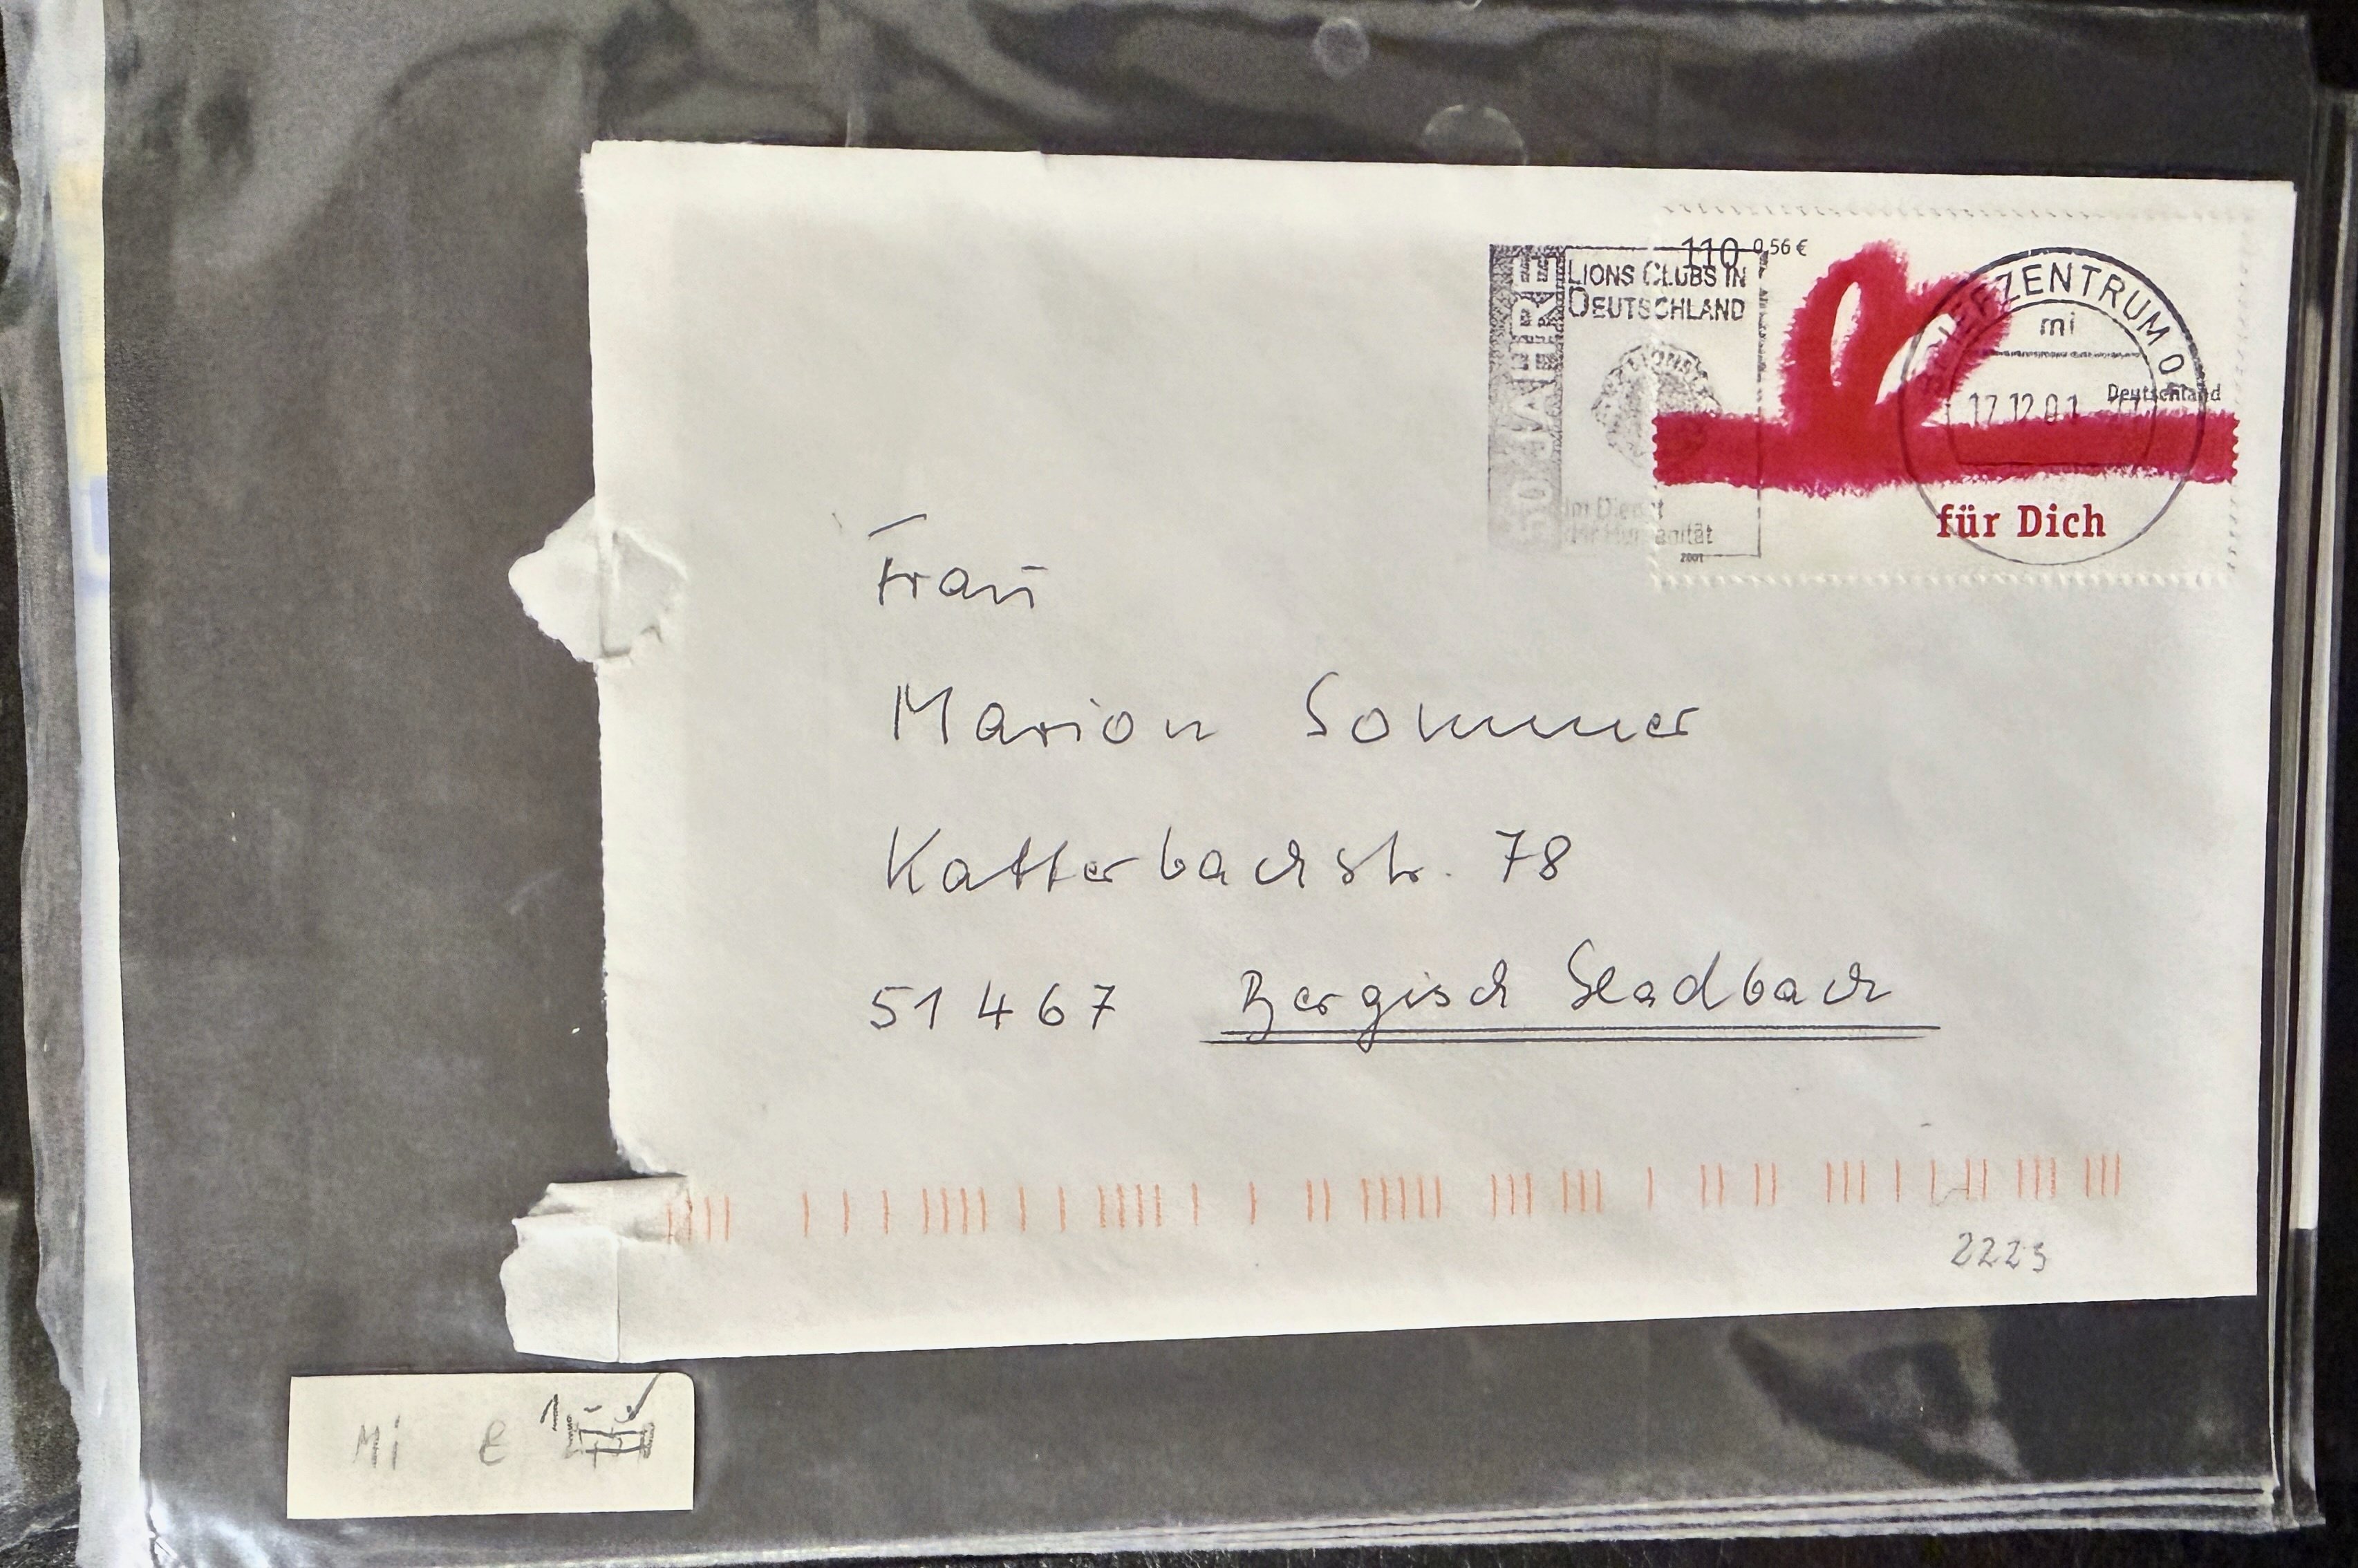 110 0,56 €
50 JAHRE
LIONS CLUBS IN
DEUTSCHLAND
Im Dienst
der Humanität
2001
BRIEFZENTRUM 0
mi
17.12.01
Deutschland
für Dich
Frau
Marion Sommer
Katterbachstr. 78
51467 Bergisch Gladbach
2223
Mi € 1